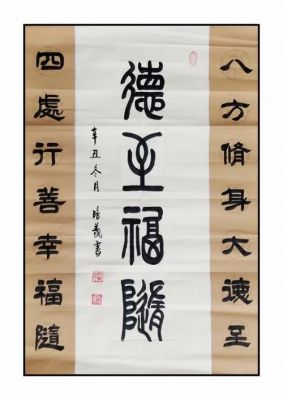 八方脩身大德至
德至福隨
辛丑冬月 義書
四處行善幸福隨